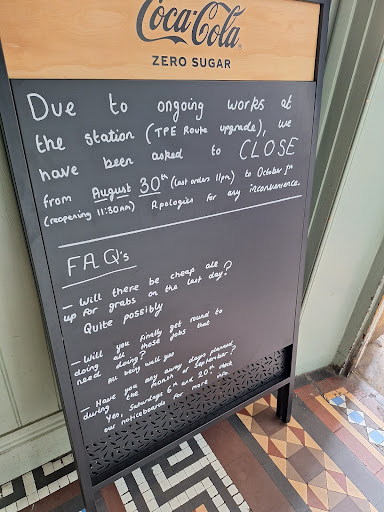 Coca-Cola
ZERO SUGAR
Due to ongoing works at
the station (TPE Route upgrade), we
have been asked to CLOSE
from August 30th (last orders 11pm) to October 1st
(reopening 11:30am) Apologies for any inconvenience.
FAQ's
- Will there be cheap ale
up for grabs on the last day?
Quite possibly
- Will you finally get round to
doing all these jobs that
need doing?
All being well yes
- Have you any away days planned
during the month of September?
Yes, Saturdays 6th and 20th check
our noticeboards for more info.